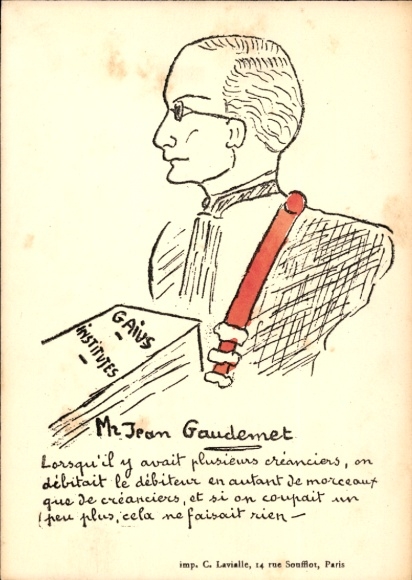 GAIUS
-
INSTITUTES
-
Mr Jean Gaudemet
Lorsqu'il y avait plusieurs créanciers, on
débitait le débiteur en autant de morceaux
que de créanciers, et si on coupait un
peu plus, cela ne faisait rien —
imp. C. Lavialle, 14 rue Soufflot, Paris